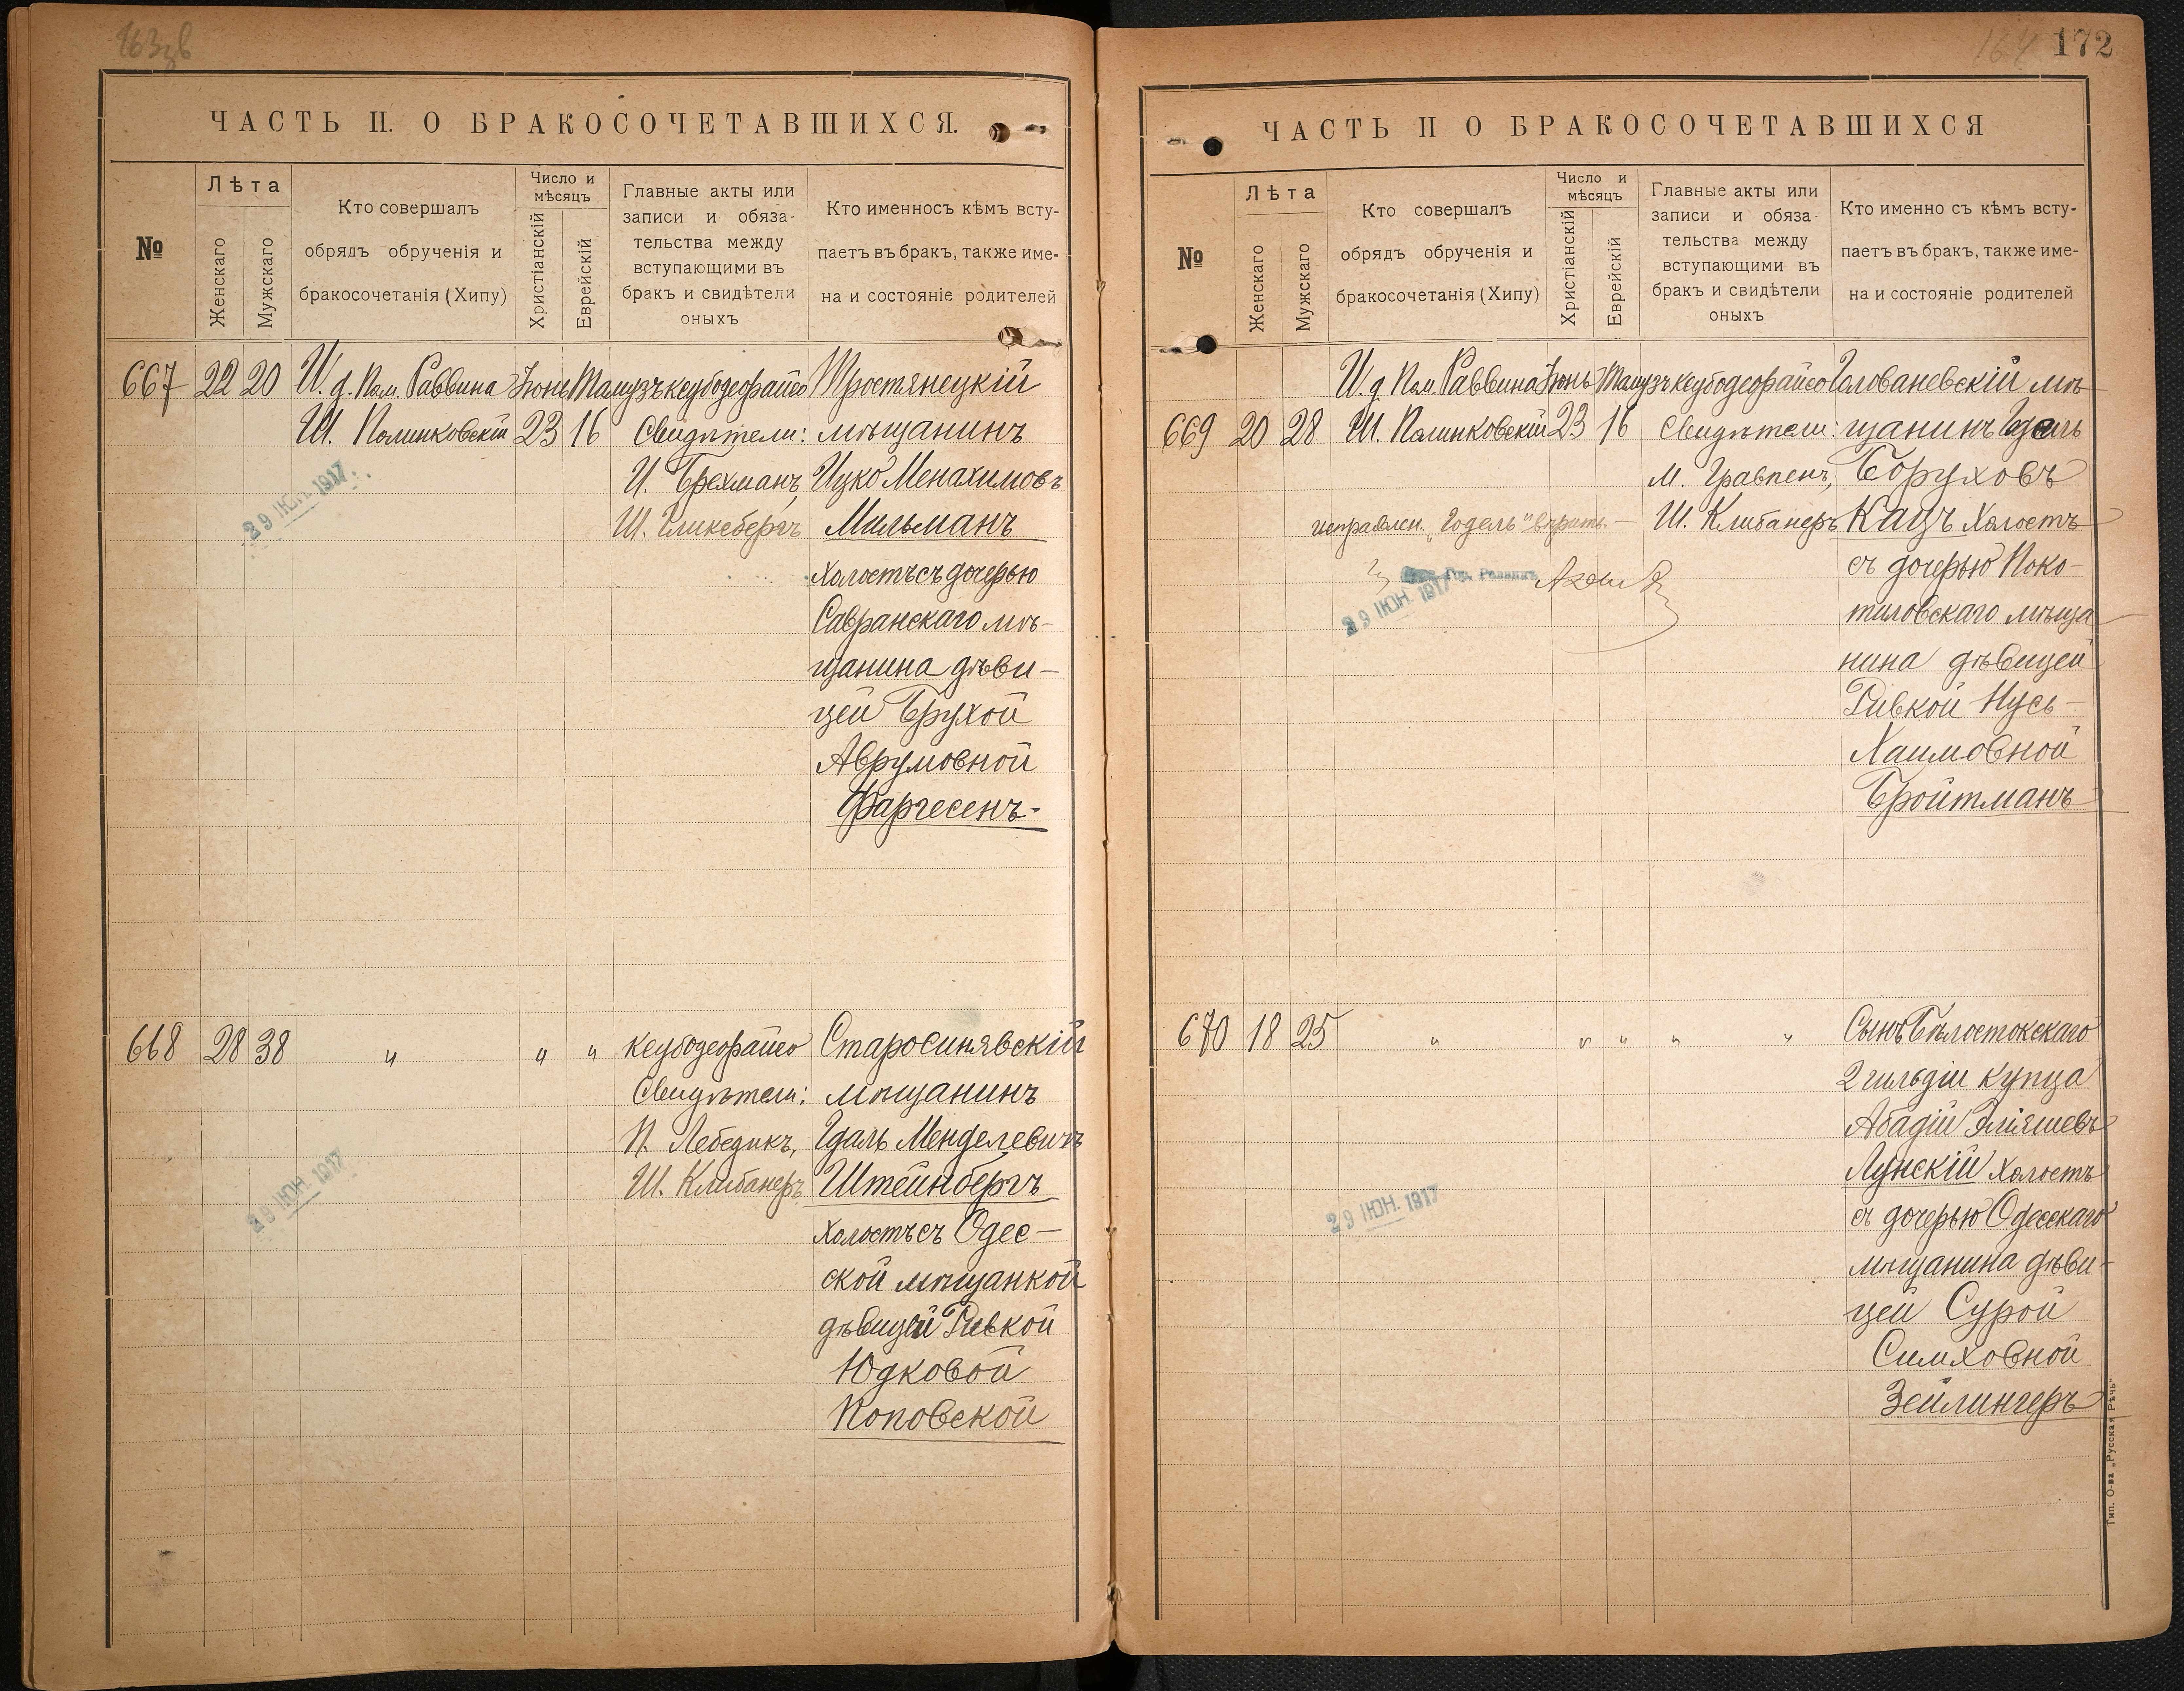 ЧАСТЬ II. О БРАКОСОЧЕТАВШИХСЯ.
№
Лѣта
Женскаго
Мужскаго
Кто совершалъ
обрядъ обрученія и
бракосочетанія (Хипу)
Число и
мѣсяцъ
Христіанскій
Еврейскій
Главные акты или
записи и обяза-
тельства между
вступающими въ
бракъ и свидѣтели
оныхъ
Кто именносъ кѣмъ всту-
паетъ въ бракъ, также име-
на и состояніе родителей
667 22 20 И. д. Пом. Раввина Іюнь Тамузъ кеубодеофайсо Тростянецкій
Ш. Полинковскій 23 16 Свидѣтели: мѣщанинъ
И. Брехманъ, Ицко Менахимовъ
Ш. Гликсбергъ Мильманъ
29 ІЮН. 1917
холостъ съ дочерью
Савранскаго мѣ-
щанина дѣви-
цей Брухой
Аврумовной
Фаргесенъ-
668 28 38 " " " кеубодеофайсо Старосинявскій
Свидѣтели: мѣщанинъ
П. Лебедикъ, Идаль Менделевичъ
Ш. Клибанеръ Штейнбергъ
29 ІЮН. 1917
холостъ съ Одес-
ской мѣщанкой
дѣвицей Ривкой
Юдковой
Коповской
172
ЧАСТЬ II О БРАКОСОЧЕТАВШИХСЯ
№
Лѣта
Женскаго
Мужскаго
Кто совершалъ
обрядъ обрученія и
бракосочетанія (Хипу)
Число и
мѣсяцъ
Христіанскій
Еврейскій
Главные акты или
записи и обяза-
тельства между
вступающими въ
бракъ и свидѣтели
оныхъ
Кто именно съ кѣмъ всту-
паетъ въ бракъ, также име-
на и состояніе родителей
И. д. Пом. Раввина Іюнь Тамузъ кеубодеофайсо Голованевскій мѣ-
669 20 28 Ш. Полинковскій 23 16 Свидѣтели: щанинъ
М. Гравпенъ, Боруховъ
исправлен. "Годель" вѣрить.- Ш. Клибанеръ Кацъ холостъ
29 ІЮН. 1917
съ дочерью Поко-
тиловскаго мѣща
нина дѣвицей
Ривкой Нусь-
Хаимовной
Бройтманъ
670 18 25 " " " " " Сынъ Бѣлостокскаго
2 гильдіи купца
Абадій Эліяшевъ
Лунскій холостъ
съ дочерью Одесскаго
мѣщанина дѣви-
цей Сурой
Симховной
Зейлингеръ
29 ІЮН. 1917
Тип. О-ва „Русская Рѣчь"